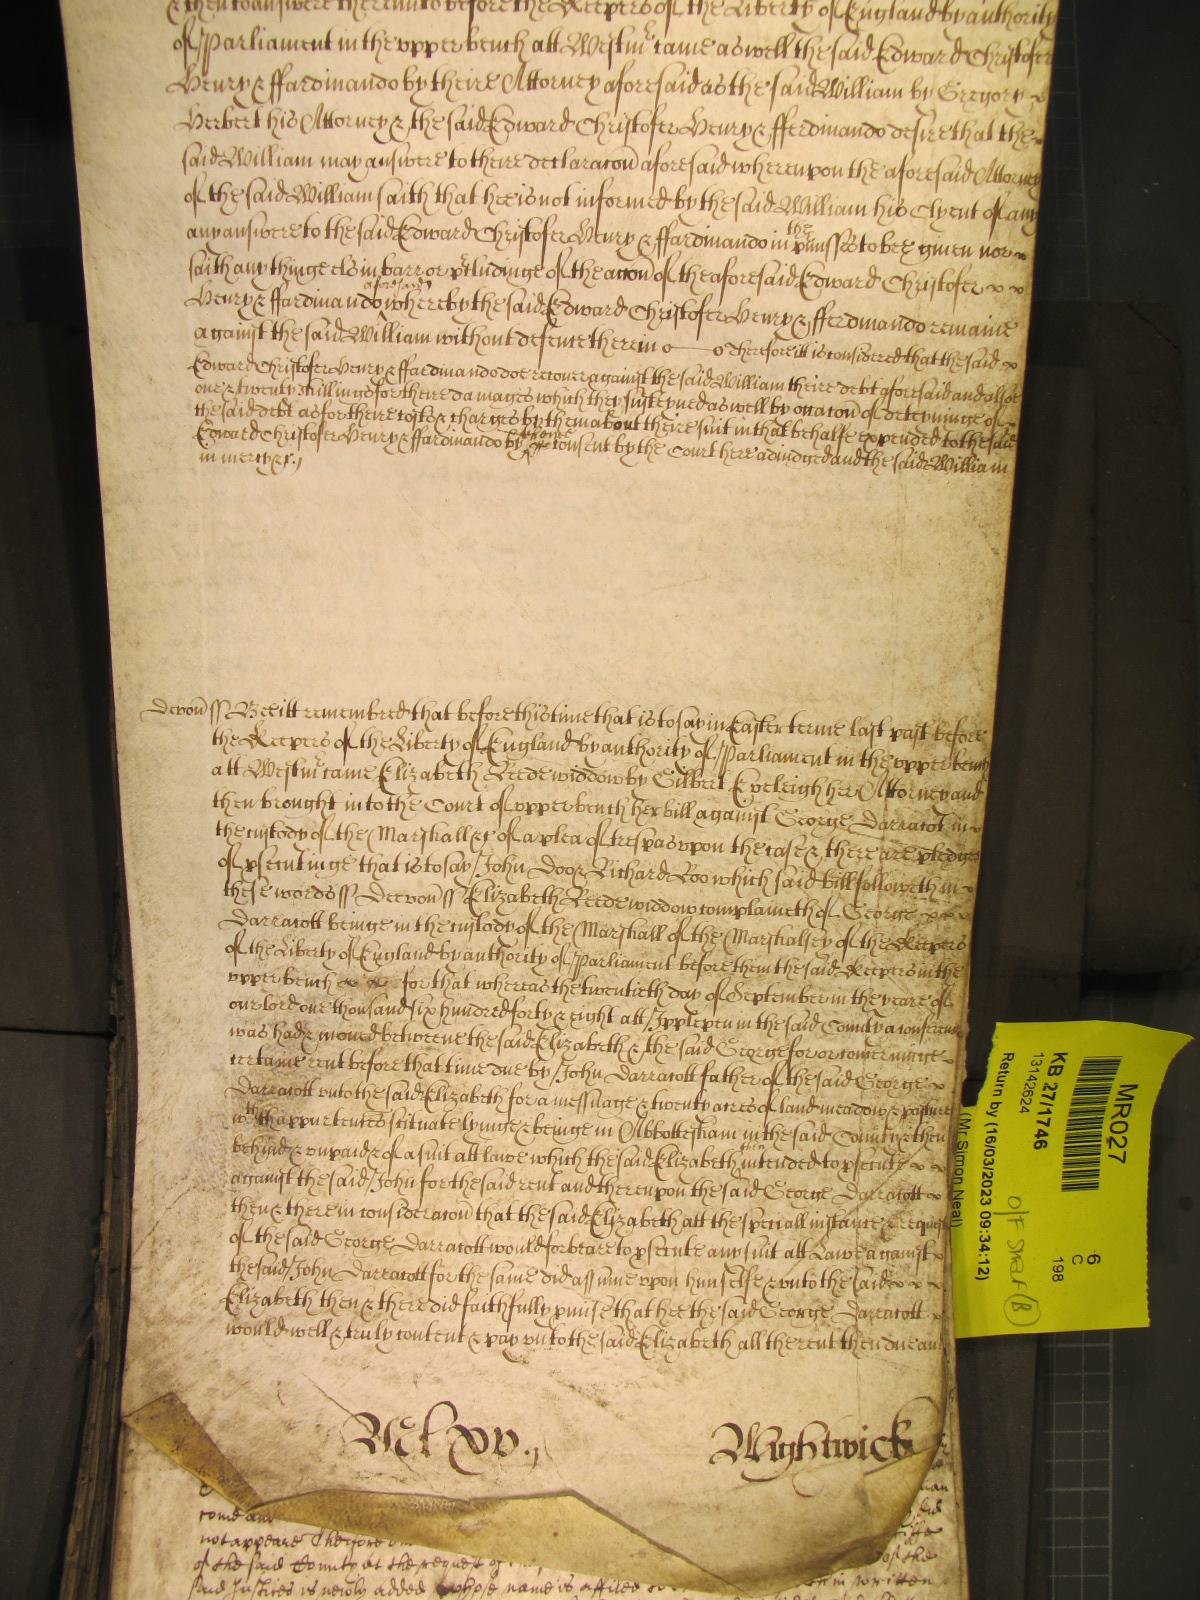 & then to answere thereunto before the Keepers of the Liberty of England by authority
of Parliament in the upper bench att Westm^r came as well the said Edward Christofer
Henry & ffardinando by theire Attorney aforesaid as the said William by Gregory
Herbert his Attorney & the said Edward Christofer Henry & fferdinando desire that the
said William may answere to theire declaracoũ aforesaid whereupon the aforesaid Attorney
of the said William saith that hee is not informed by the said William his Clyent of any
any answere to the said Edward Christofer Henry & ffardinando in the pmisses to bee given nor
saith any thinge els in barr or pcludinge of the accoũ of the aforesaid Edward Christofer
Henry & ffardinando aforesaid whereby the said Edward Christofer Henry & fferdinando remaine
against the said William without defence therein Therefore itt is considered that the said
Edward Christofer Henry & ffardinando doe recover against the said William theire debt aforesaid and alsoe
one & twenty shillings for theire damages which they susteyned as well by occacoũ of deteyninge of
the said debt as for theire costs & charges by them about theire suit in that behalfe expended to the said
Edward Christofer Henry & ffardinando by consent by the Court here adiudged and the said William
in mercy &c.,
Devoñ ss Bee itt remembred that before this time that is to say in Easter terme last past before
the Keepers of the Liberty of England by authority of Parliament in the upper bench
att Westm^r came Elizabeth Reede widdow by Gilbert Eveleigh her Attorney and
then brought into the Court of upper bench her bill against George Darracot in
the custody of the Marshall &c of a plea of trespas upon the case & there are pledges
of psecutinge that is to say John Doo & Richard Roo which said bill followeth in
these words ss Devoñ ss Elizabeth Reede widdow complaineth of George
Darracott beinge in the custody of the Marshall of the Marshalsey of the Keepers
of the Liberty of England by authority of Parliament before them the said Keepers in the
upper bench for that whereas the twentieth day of September in the yeare of
our Lord one thousand six hundred forty & eight att Appleyen in the said County a conference
was had & moved betweene the said Elizabeth & the said George for or concerninge
certaine rent before that time due by John Darracott father of the said George
Darracott unto the said Elizabeth for a messuage & twenty acres of land meadow & pasture
wth thappurtences scituate lyinge & beinge in Abbottesham in the said County & then
behynd & unpaid & of a suit att lawe which the said Elizabeth then intended to psecute
against the said John for the said rent and thereupon the said George Darracott
then & there in consideracoũ that the said Elizabeth att the speciall instance & request
of the said George Darracott would forbeare to psecute any suit att Lawe against
the said John Darracott for the same did assume upon himselfe & unto the said
Elizabeth then & there did faithfully pmise that hee the said George Darracott
would well & truly content & pay unto the said Elizabeth all the rent then due and
Wightwick
come and
not appeare Therefore
of the said County at the request of
said Justices is newly added whose name is affiled
written
MR027
KB 27/1746
13142624
Return by (16/03/2023 09:34:12)
(Mr Simon Neal)
6
C
198